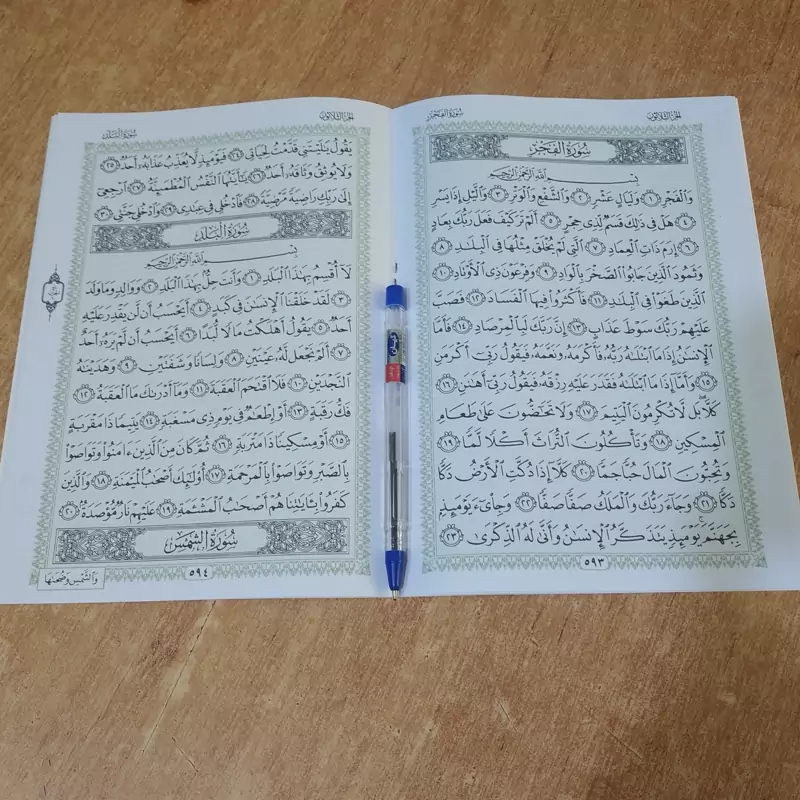 الجزء الثلاثون
سورة الفجر
سُورَةُ الفَجْرِ
بِسْمِ اللَّهِ الرَّحْمَٰنِ الرَّحِيمِ
وَالْفَجْرِ ١ وَلَيَالٍ عَشْرٍ ٢ وَالشَّفْعِ وَالْوَتْرِ ٣ وَاللَّيْلِ إِذَا يَسْرِ
٤ هَلْ فِي ذَٰلِكَ قَسَمٌ لِّذِي حِجْرٍ ٥ أَلَمْ تَرَ كَيْفَ فَعَلَ رَبُّكَ بِعَادٍ
٦ إِرَمَ ذَاتِ الْعِمَادِ ٧ الَّتِي لَمْ يُخْلَقْ مِثْلُهَا فِي الْبِلَادِ ٨
وَثَمُودَ الَّذِينَ جَابُوا الصَّخْرَ بِالْوَادِ ٩ وَفِرْعَوْنَ ذِي الْأَوْتَادِ ١٠
الَّذِينَ طَغَوْا فِي الْبِلَادِ ١١ فَأَكْثَرُوا فِيهَا الْفَسَادَ ١٢ فَصَبَّ
عَلَيْهِمْ رَبُّكَ سَوْطَ عَذَابٍ ١٣ إِنَّ رَبَّكَ لَبِالْمِرْصَادِ ١٤ فَأَمَّا
الْإِنسَانُ إِذَا مَا ابْتَلَاهُ رَبُّهُ فَأَكْرَمَهُ وَنَعَّمَهُ فَيَقُولُ رَبِّي أَكْرَمَنِ
١٥ وَأَمَّا إِذَا مَا ابْتَلَاهُ فَقَدَرَ عَلَيْهِ رِزْقَهُ فَيَقُولُ رَبِّي أَهَانَنِ ١٦
كَلَّا ۖ بَل لَّا تُكْرِمُونَ الْيَتِيمَ ١٧ وَلَا تَحَاضُّونَ عَلَىٰ طَعَامِ
الْمِسْكِينِ ١٨ وَتَأْكُلُونَ التُّرَاثَ أَكْلًا لَّمًّا ١٩
وَتُحِبُّونَ الْمَالَ حُبًّا جَمًّا ٢٠ كَلَّا إِذَا دُكَّتِ الْأَرْضُ دَكًّا
دَكًّا ٢١ وَجَاءَ رَبُّكَ وَالْمَلَكُ صَفًّا صَفًّا ٢٢ وَجِيءَ يَوْمَئِذٍ
بِجَهَنَّمَ ۚ يَوْمَئِذٍ يَتَذَكَّرُ الْإِنسَانُ وَأَنَّىٰ لَهُ الذِّكْرَىٰ ٢٣
٥٩٣
الجزء الثلاثون
سورة البلد
يَقُولُ يَا لَيْتَنِي قَدَّمْتُ لِحَيَاتِي ٢٤ فَيَوْمَئِذٍ لَّا يُعَذِّبُ عَذَابَهُ أَحَدٌ ٢٥
وَلَا يُوثِقُ وَثَاقَهُ أَحَدٌ ٢٦ يَا أَيَّتُهَا النَّفْسُ الْمُطْمَئِنَّةُ ٢٧ ارْجِعِي
إِلَىٰ رَبِّكِ رَاضِيَةً مَّرْضِيَّةً ٢٨ فَادْخُلِي فِي عِبَادِي ٢٩ وَادْخُلِي جَنَّتِي ٣٠
سُورَةُ البَلَدِ
بِسْمِ اللَّهِ الرَّحْمَٰنِ الرَّحِيمِ
لَا أُقْسِمُ بِهَٰذَا الْبَلَدِ ١ وَأَنتَ حِلٌّ بِهَٰذَا الْبَلَدِ ٢ وَوَالِدٍ وَمَا وَلَدَ
٣ لَقَدْ خَلَقْنَا الْإِنسَانَ فِي كَبَدٍ ٤ أَيَحْسَبُ أَن لَّن يَقْدِرَ عَلَيْهِ
أَحَدٌ ٥ يَقُولُ أَهْلَكْتُ مَالًا لُّبَدًا ٦ أَيَحْسَبُ أَن لَّمْ يَرَهُ أَحَدٌ
٧ أَلَمْ نَجْعَل لَّهُ عَيْنَيْنِ ٨ وَلِسَانًا وَشَفَتَيْنِ ٩ وَهَدَيْنَاهُ
النَّجْدَيْنِ ١٠ فَلَا اقْتَحَمَ الْعَقَبَةَ ١١ وَمَا أَدْرَاكَ مَا الْعَقَبَةُ ١٢
فَكُّ رَقَبَةٍ ١٣ أَوْ إِطْعَامٌ فِي يَوْمٍ ذِي مَسْغَبَةٍ ١٤ يَتِيمًا ذَا مَقْرَبَةٍ
١٥ أَوْ مِسْكِينًا ذَا مَتْرَبَةٍ ١٦ ثُمَّ كَانَ مِنَ الَّذِينَ آمَنُوا وَتَوَاصَوْا
بِالصَّبْرِ وَتَوَاصَوْا بِالْمَرْحَمَةِ ١٧ أُولَٰئِكَ أَصْحَابُ الْمَيْمَنَةِ ١٨ وَالَّذِينَ
كَفَرُوا بِآيَاتِنَا هُمْ أَصْحَابُ الْمَشْأَمَةِ ١٩ عَلَيْهِمْ نَارٌ مُّؤْصَدَةٌ ٢٠
سُورَةُ الشَّمْسِ
٥٩٤
وَالشَّمْسِ وَضُحَاهَا